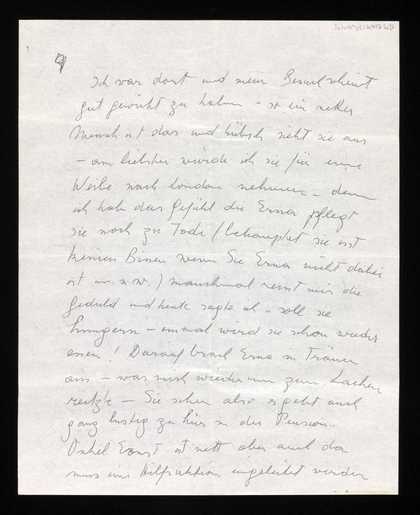 9)
Ich war dort und mein Besuch scheint
gut gewirkt zu haben – so ein netter
Mensch ist das und hübsch sieht sie aus
– am liebsten würde ich sie für eine
Weile nach London nehmen – denn
ich habe das Gefühl die Erna pflegt
sie noch zu Tode (behauptet sie isst
keinen Bissen wenn Sie Erna nicht dabei
ist u. s. w.) manchmal reisst mir die
Geduld und heute sagte ich – soll sie
hungern – einmal wird sie schon wieder
essen! Darauf brach Erna in Tränen
aus – was mich wieder nur zum Lachen
reitzte – Sie sehen also es geht auch
ganz lustig zu hier in der Pension.
Onkel Ernst ist nett aber auch da
muss eine Hilfsaktion eingeleitet werden